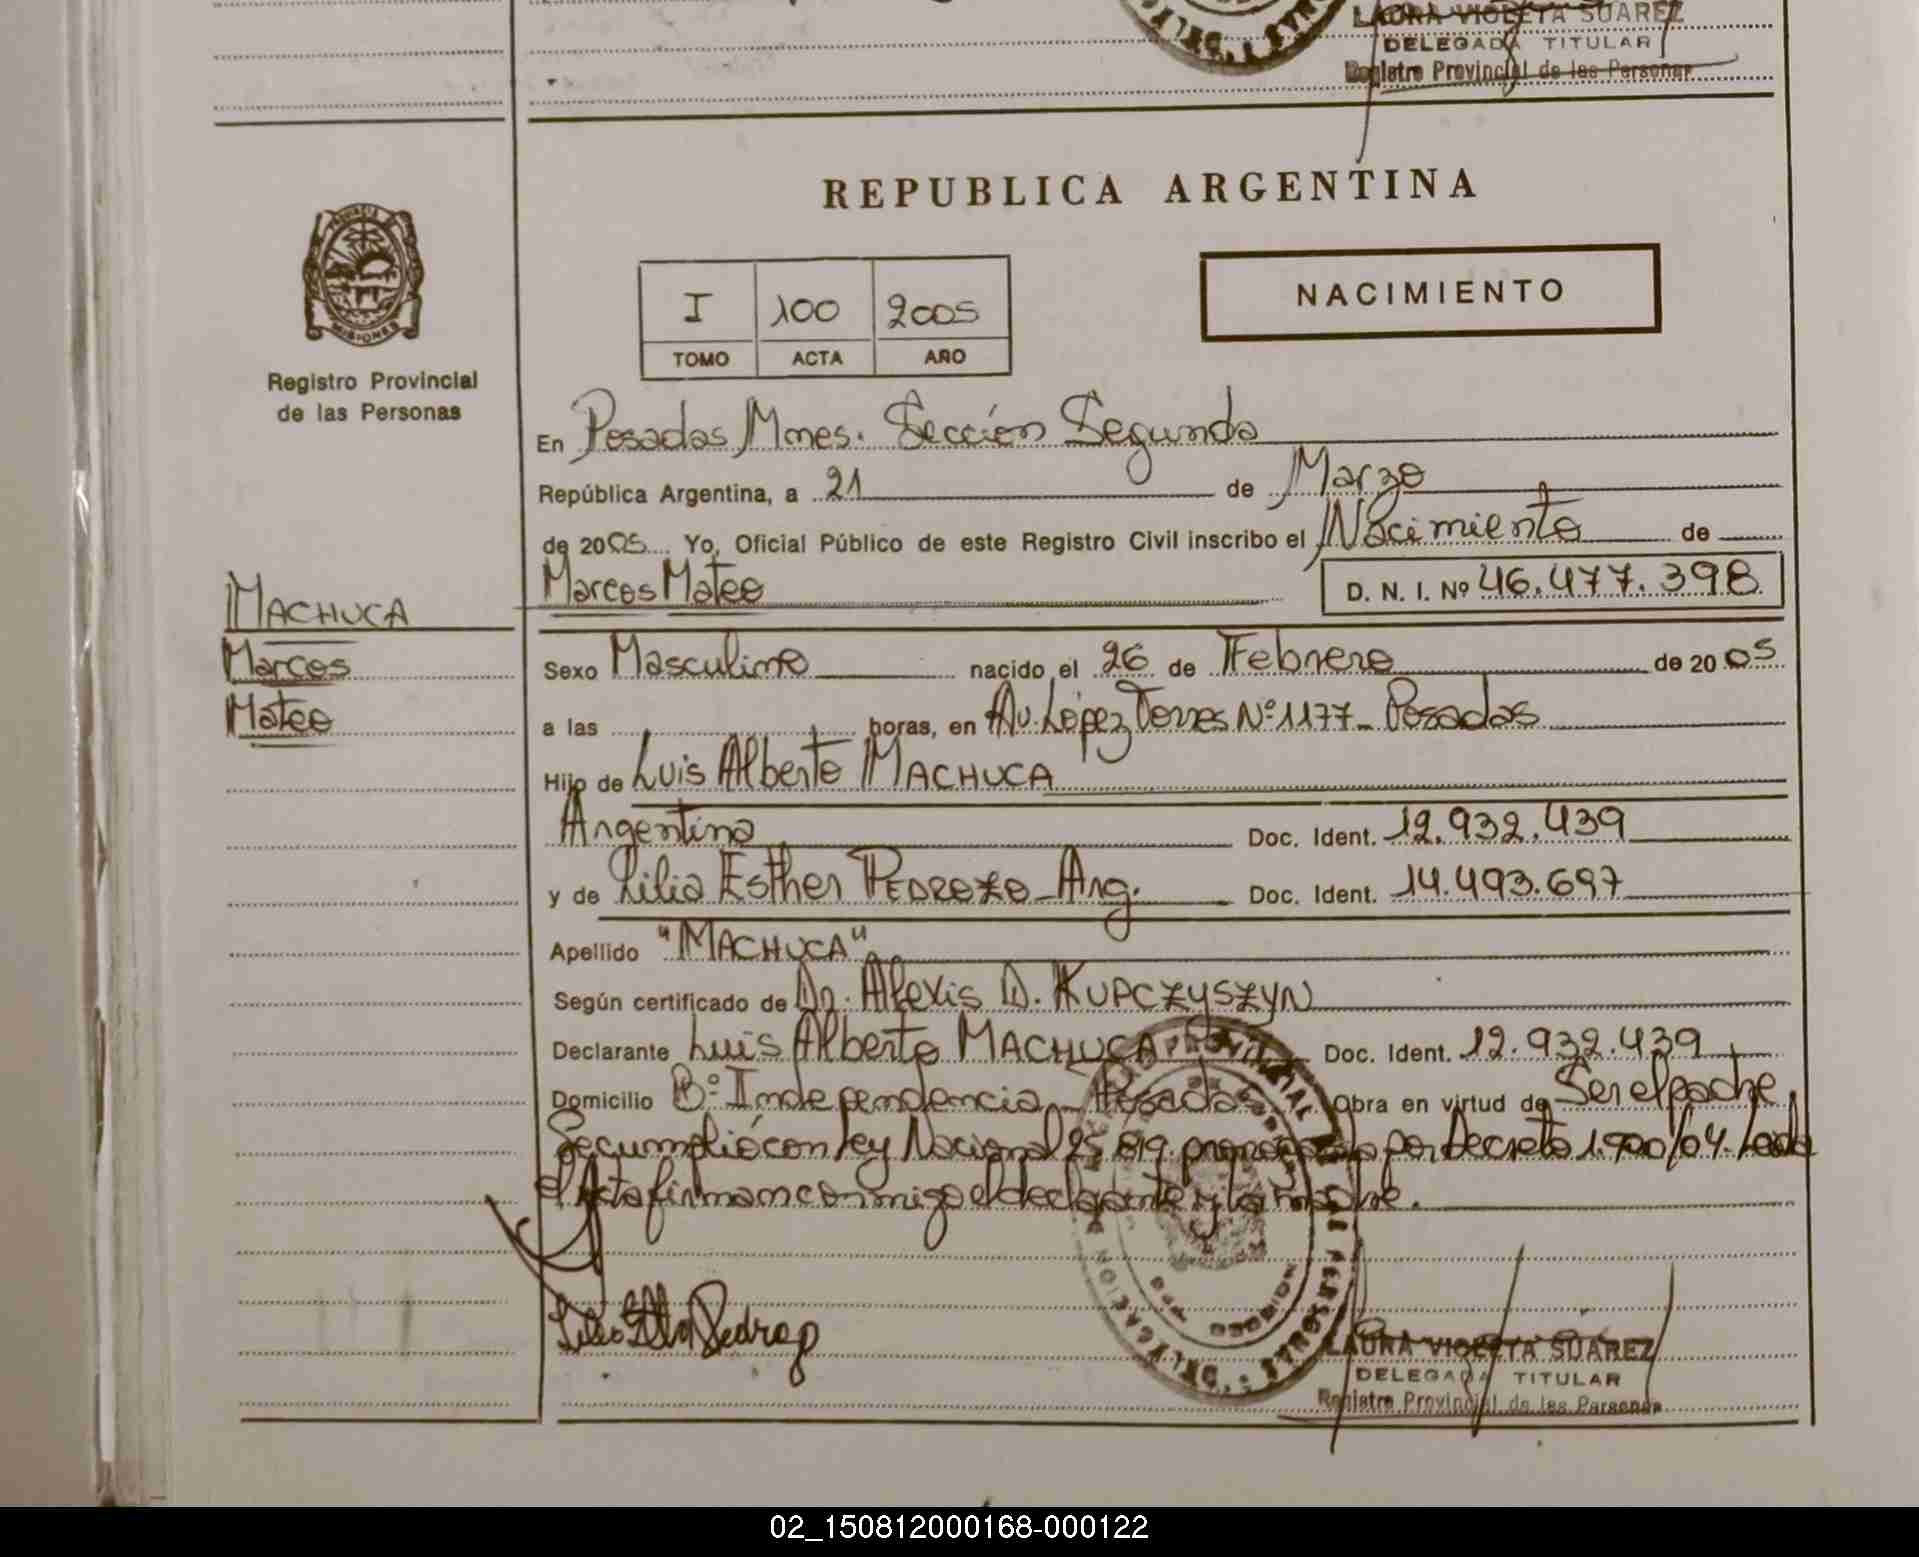 LAURA VIOLETA SUAREZ
DELEGADA TITULAR
Registro Provincial de las Personas
REPUBLICA ARGENTINA
PROVINCIA DE
MISIONES
Registro Provincial
de las Personas
I 100 2005
TOMO ACTA AÑO
NACIMIENTO
En Posadas Mnes. Sección Segunda
República Argentina, a 21 de Marzo
de 2005 Yo, Oficial Público de este Registro Civil inscribo el Nacimiento de
Marcos Mateo D. N. I. Nº 46.477.398
MACHUCA
Marcos
Mateo
Sexo Masculino nacido el 26 de Febrero de 2005
a las horas, en Av. López Torres Nº 1177 - Posadas
Hijo de Luis Alberto MACHUCA
Argentina Doc. Ident. 12.932.439
y de Lilia Esther PEDROZO - Arg. Doc. Ident. 14.493.697
Apellido "MACHUCA"
Según certificado de Dr. Alexis D. KUPCZYSZYN
Declarante Luis Alberto MACHUCA Doc. Ident. 12.932.439
Domicilio Bº Independencia - Posadas Obra en virtud de Ser el padre
Se cumplió con ley Nacional 25.819 por Decreto 1.700/04. Leída
el Acta firman conmigo el declarante y la madre.
LAURA VIOLETA SUAREZ
DELEGADA TITULAR
Registro Provincial de las Personas
02_150812000168-000122